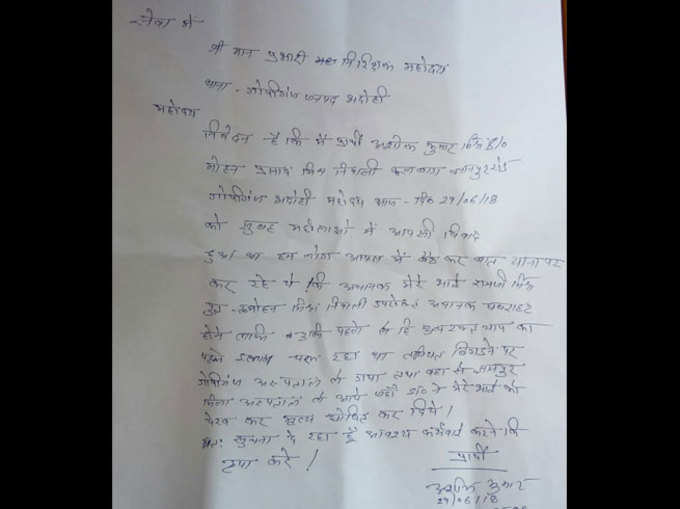 सेवा में
श्री मान प्रभारी निरिक्षक महोदय
थाना - गोपीगंज जनपद भदोही
महोदय
निवेदन है कि मैं प्रार्थी अशोक कुमार मिश्र S/o
मोहन प्रसाद मिश्र निवासी
गोपीगंज भदोही महोदय आज - दि० 29/06/18
को सुबह महीलाओ में आपसी विवाद
हुआ था हम लोग आपस में बैठ कर बात थाना पर
कर रहे थे कि अचानक मेरे भाई रामजी मिश्र
पुत्र - मोहन मिश्र निवासी उपरोक्त अचानक घबराहट
होने लागी पहले से हि उच्च रक्त चाप का
पहले इलाज चल रहा था तबीयत बिगडने पर
गोपीगंज अस्पताल ले गया तथा वहा से
जिला अस्पताल ले आये जहाँ डा० ने मेरे भाई को
देख कर मृत्यु घोषित कर दिये।
अतः सुचना दे रहा हूँ आवश्य करने कि
कृपा करे।
प्रार्थी
अशोक कुमार
29/06/18